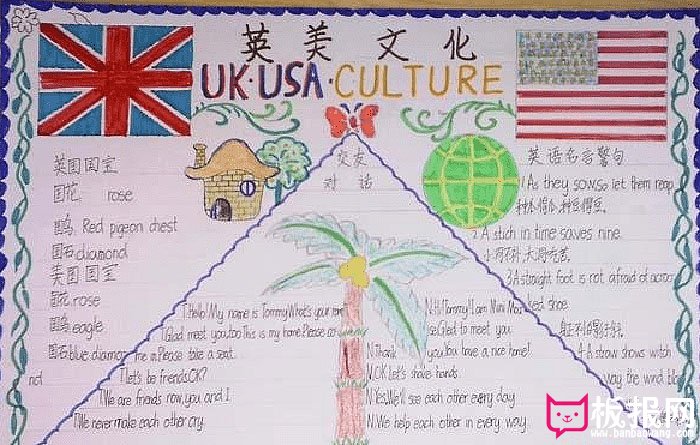 英美文化
UK·USA·CULTURE
英国国宝
国花 rose
国鸟 Red pigeon chest
国石 diamond
美国国宝
国花 rose
国鸟 eagle
国石 blue diamond
交友
对话
T.Hello! My name is Tommy. What's your
T.Glad meet you, too. This is my home. Please
me in. Please take a seat.
T.Let's be friends, OK?
T.We are friends now, you and I.
T.We never make each other cry.
N.Hi Tommy! I am Mini
so Glad to meet you.
N.Thank you. You have a nice home!
N.OK. Let's shave hands.
N.Yes, We'll see each other every day.
N.We help each other in every way.
英语名言警句
1 As they sow, so let them reap
种瓜得瓜,种豆得豆。
2 A stich in time saves nine.
小洞不补,大洞吃苦。
3.A straight foot is not afraid of a
shoe.
身正不怕影斜
4.A straw shows witch
way the wind
板报网
www.banbaowang.com